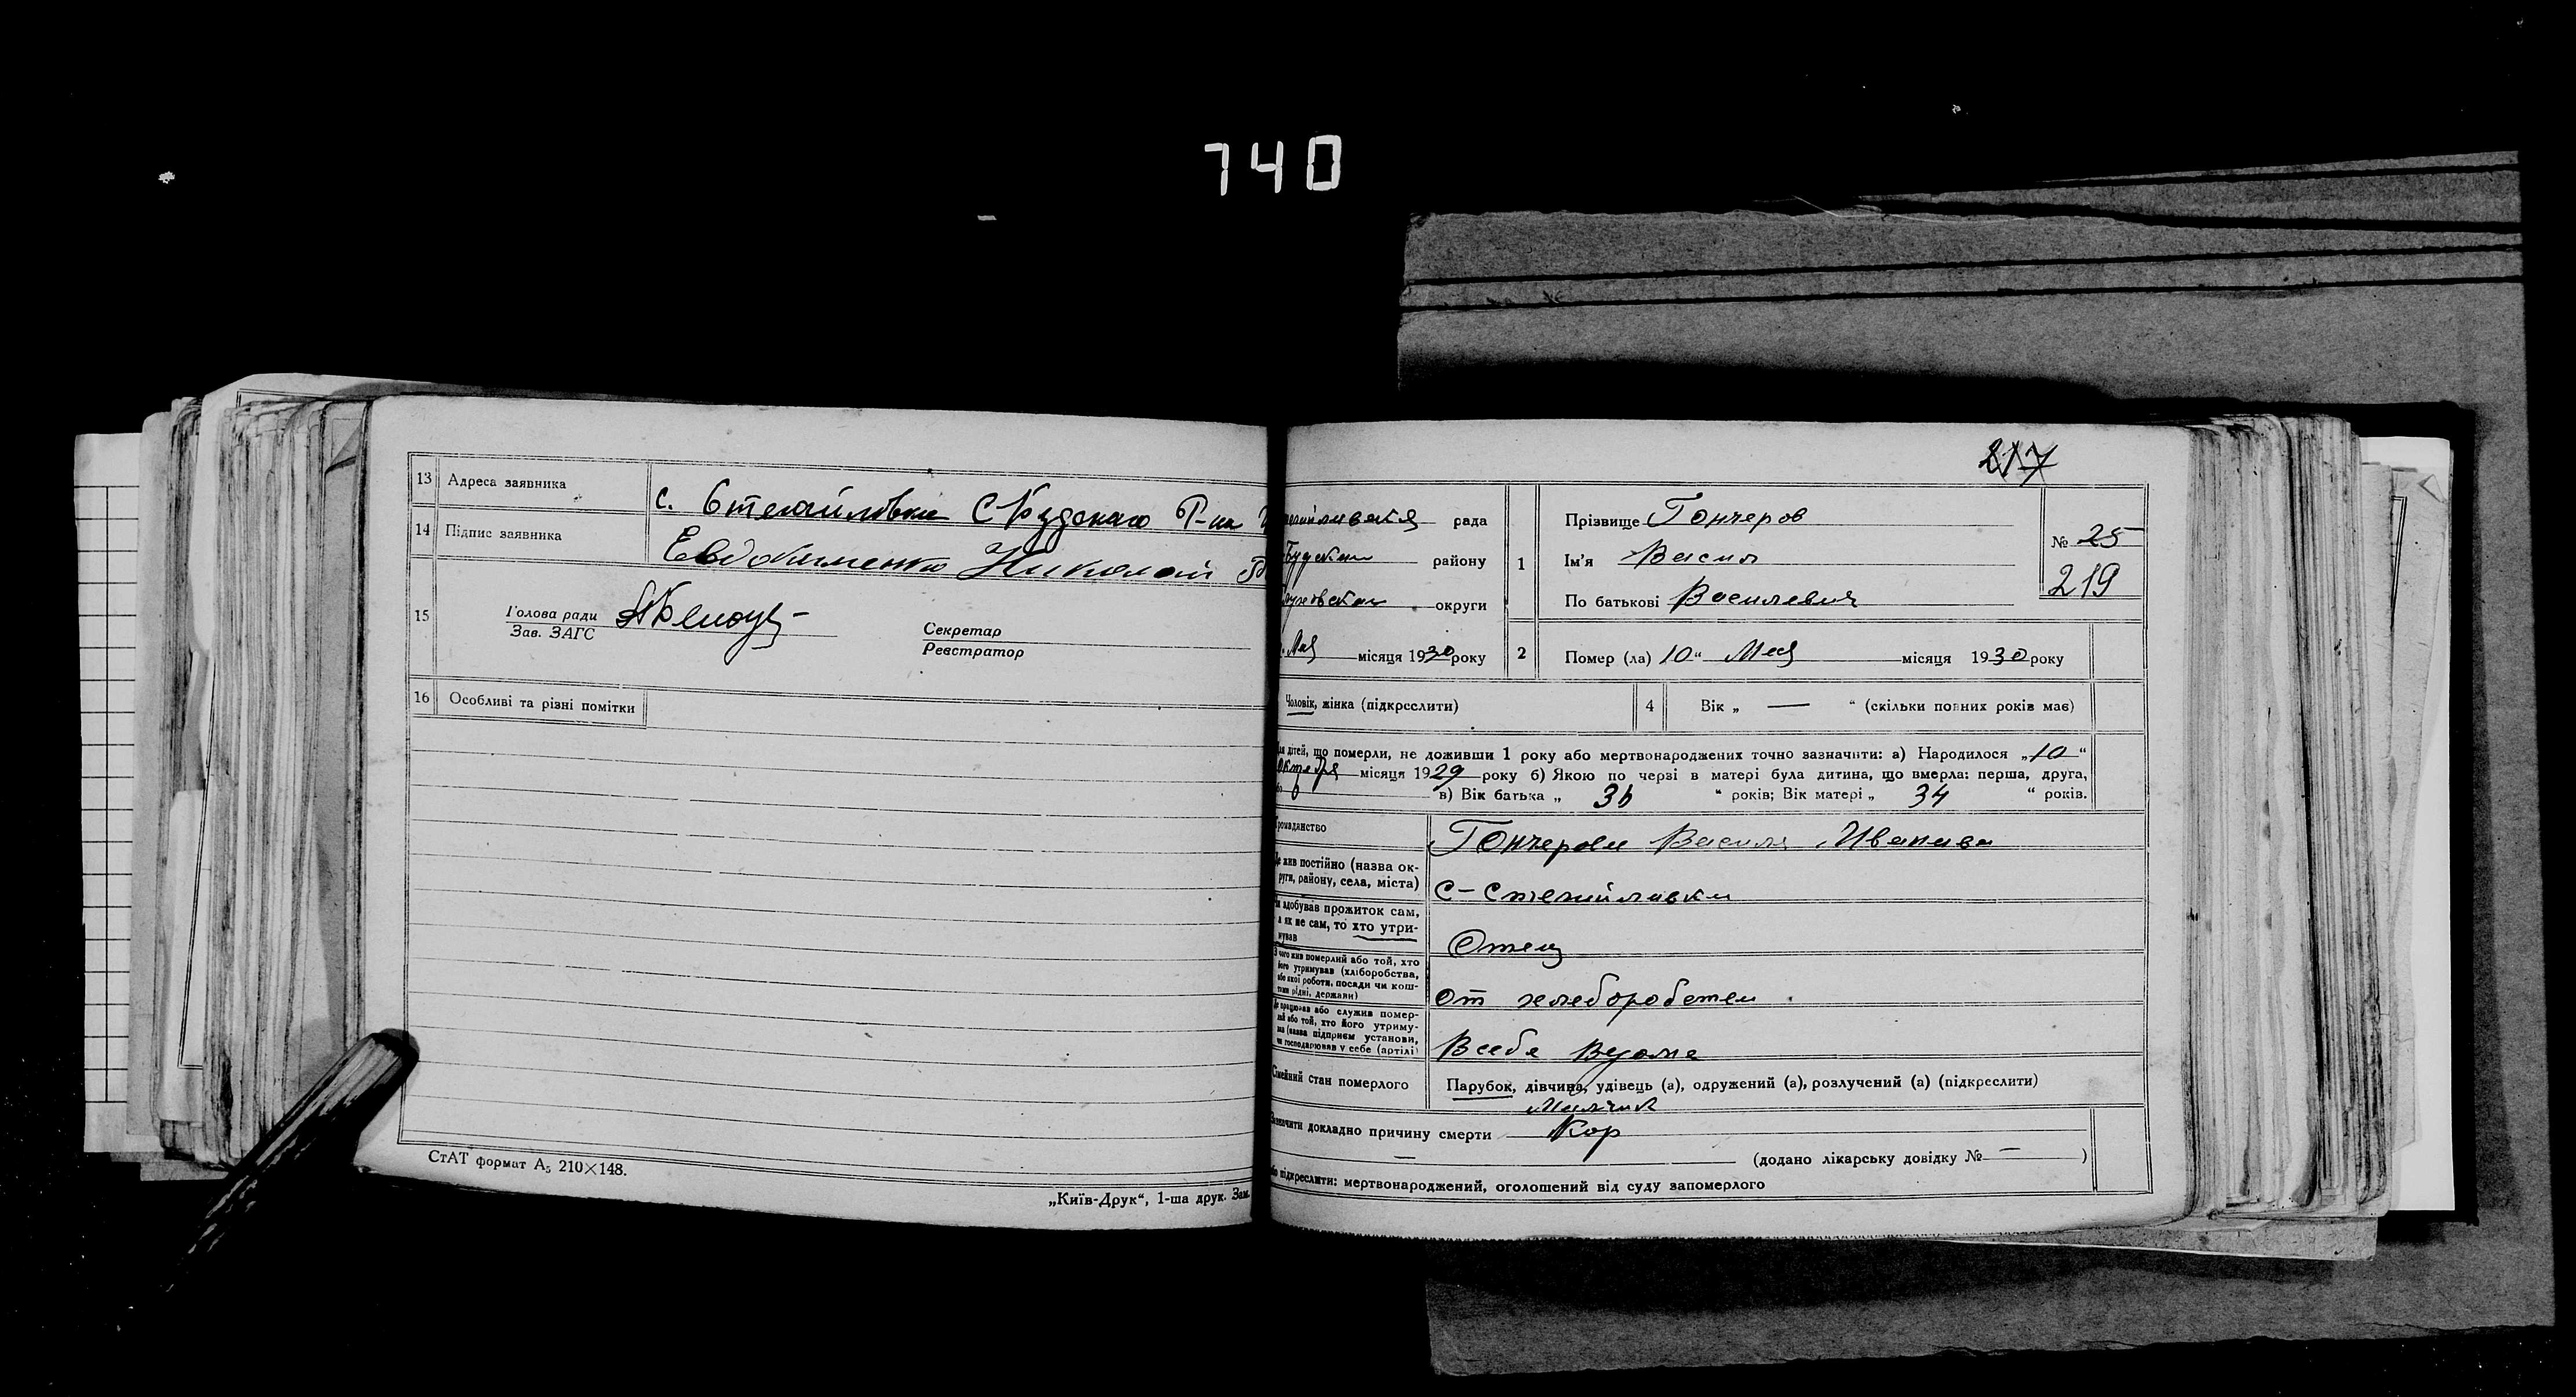 740
13 Адреса заявника с. Стегайловка С Будскаго Р-на
14 Підпис заявника Евдокименко Николай
15 Голова ради
Зав. ЗАГС
Секретар
Реєстратор
16 Особливі та різні помітки
СтАТ формат А5 210×148.
„Київ-Друк“, 1-ша друк. Зам.
217
рада
Будскаи району
округи
Мая місяця 1930 року
1 Прізвище Гончеров
Ім'я Васил
По батькові Василевич
№ 25
219
2 Помер (ла) 10 “ Мая місяця 1930 року
Чоловік, жінка (підкреслити)
4 Вік „ — “ (скільки повних років має)
дітей, що померли, не доживши 1 року або мертвонароджених точно зазначити: а) Народилося „10“
Октебря місяця 1929 року б) Якою по черві в матері була дитина, що вмерла: перша, друга,
в) Вік батька „ 36 “ років; Вік матері „ 34 “ років.
Громаданство Гончерова Василя Иванава
Де жив постійно (назва ок-
руги, району, села, міста) с-Стегайлавки
здобував прожиток сам,
а як не сам, то хто утри-
мував Отец
З чого жив померлий або той, хто
його утримував (хліборобства,
або якої роботи, посади чи кош-
тами рідні, держави) от хлеборобетеи
Де працював або служив помер-
лий або той, хто його утриму-
вав (назва підприєм установи,
чи господарював у себе (артілі) Всебе Вдоме
Сімейний стан померлого Парубок, дівчина, удівець (а), одружений (а), розлучений (а) (підкреслити)
Малчик
Зазначити докладно причину смерти Кор
— (додано лікарську довідку № — )
або підкреслити: мертвонароджений, оголошений від суду запомерлого